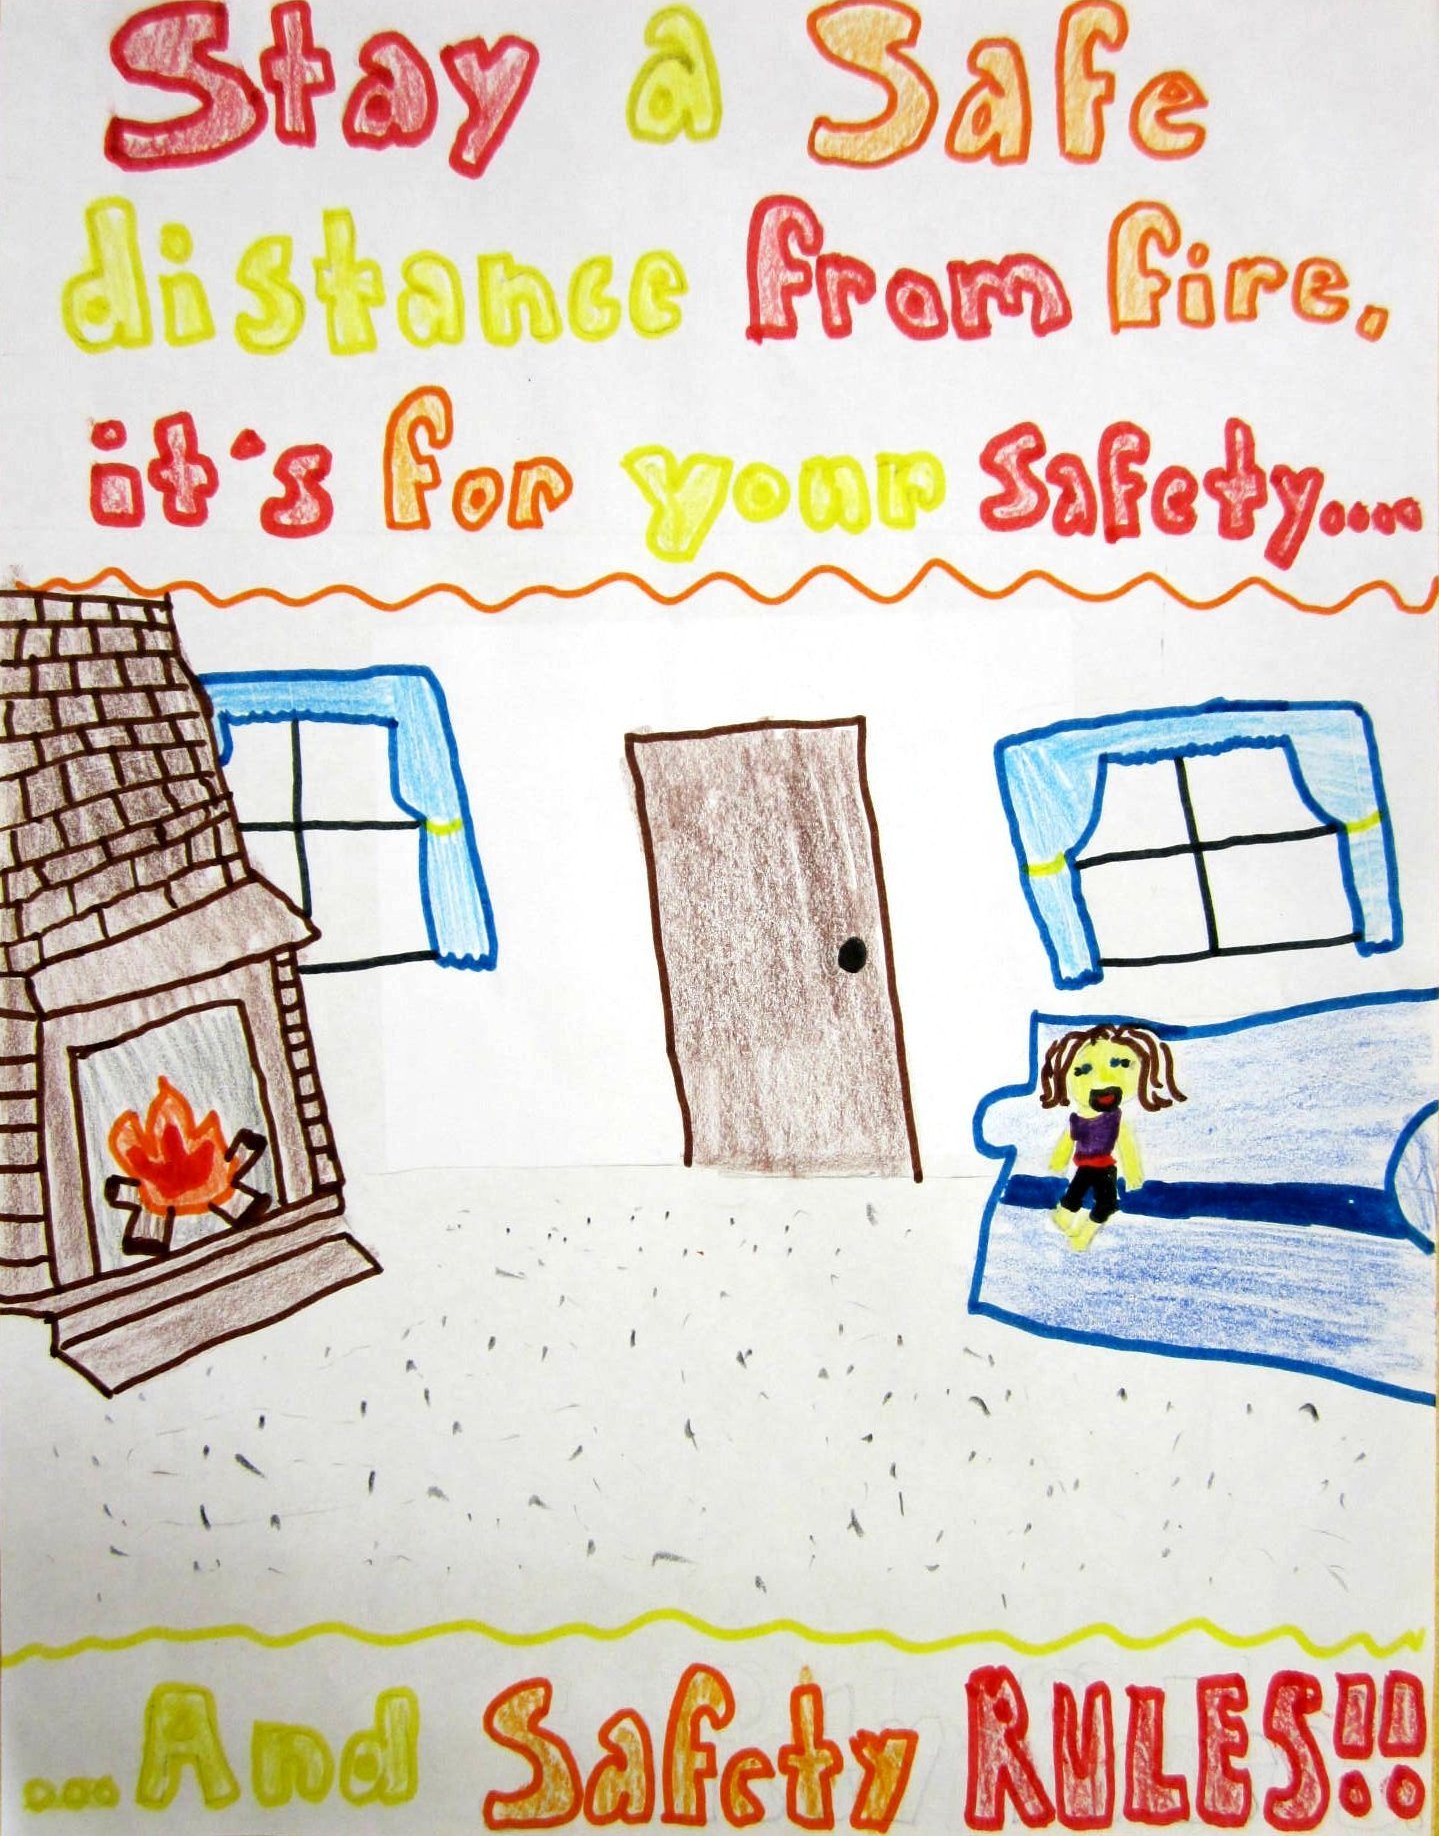 Stay a Safe
distance from fire,
it's for your Safety....
...And Safety RULES!!